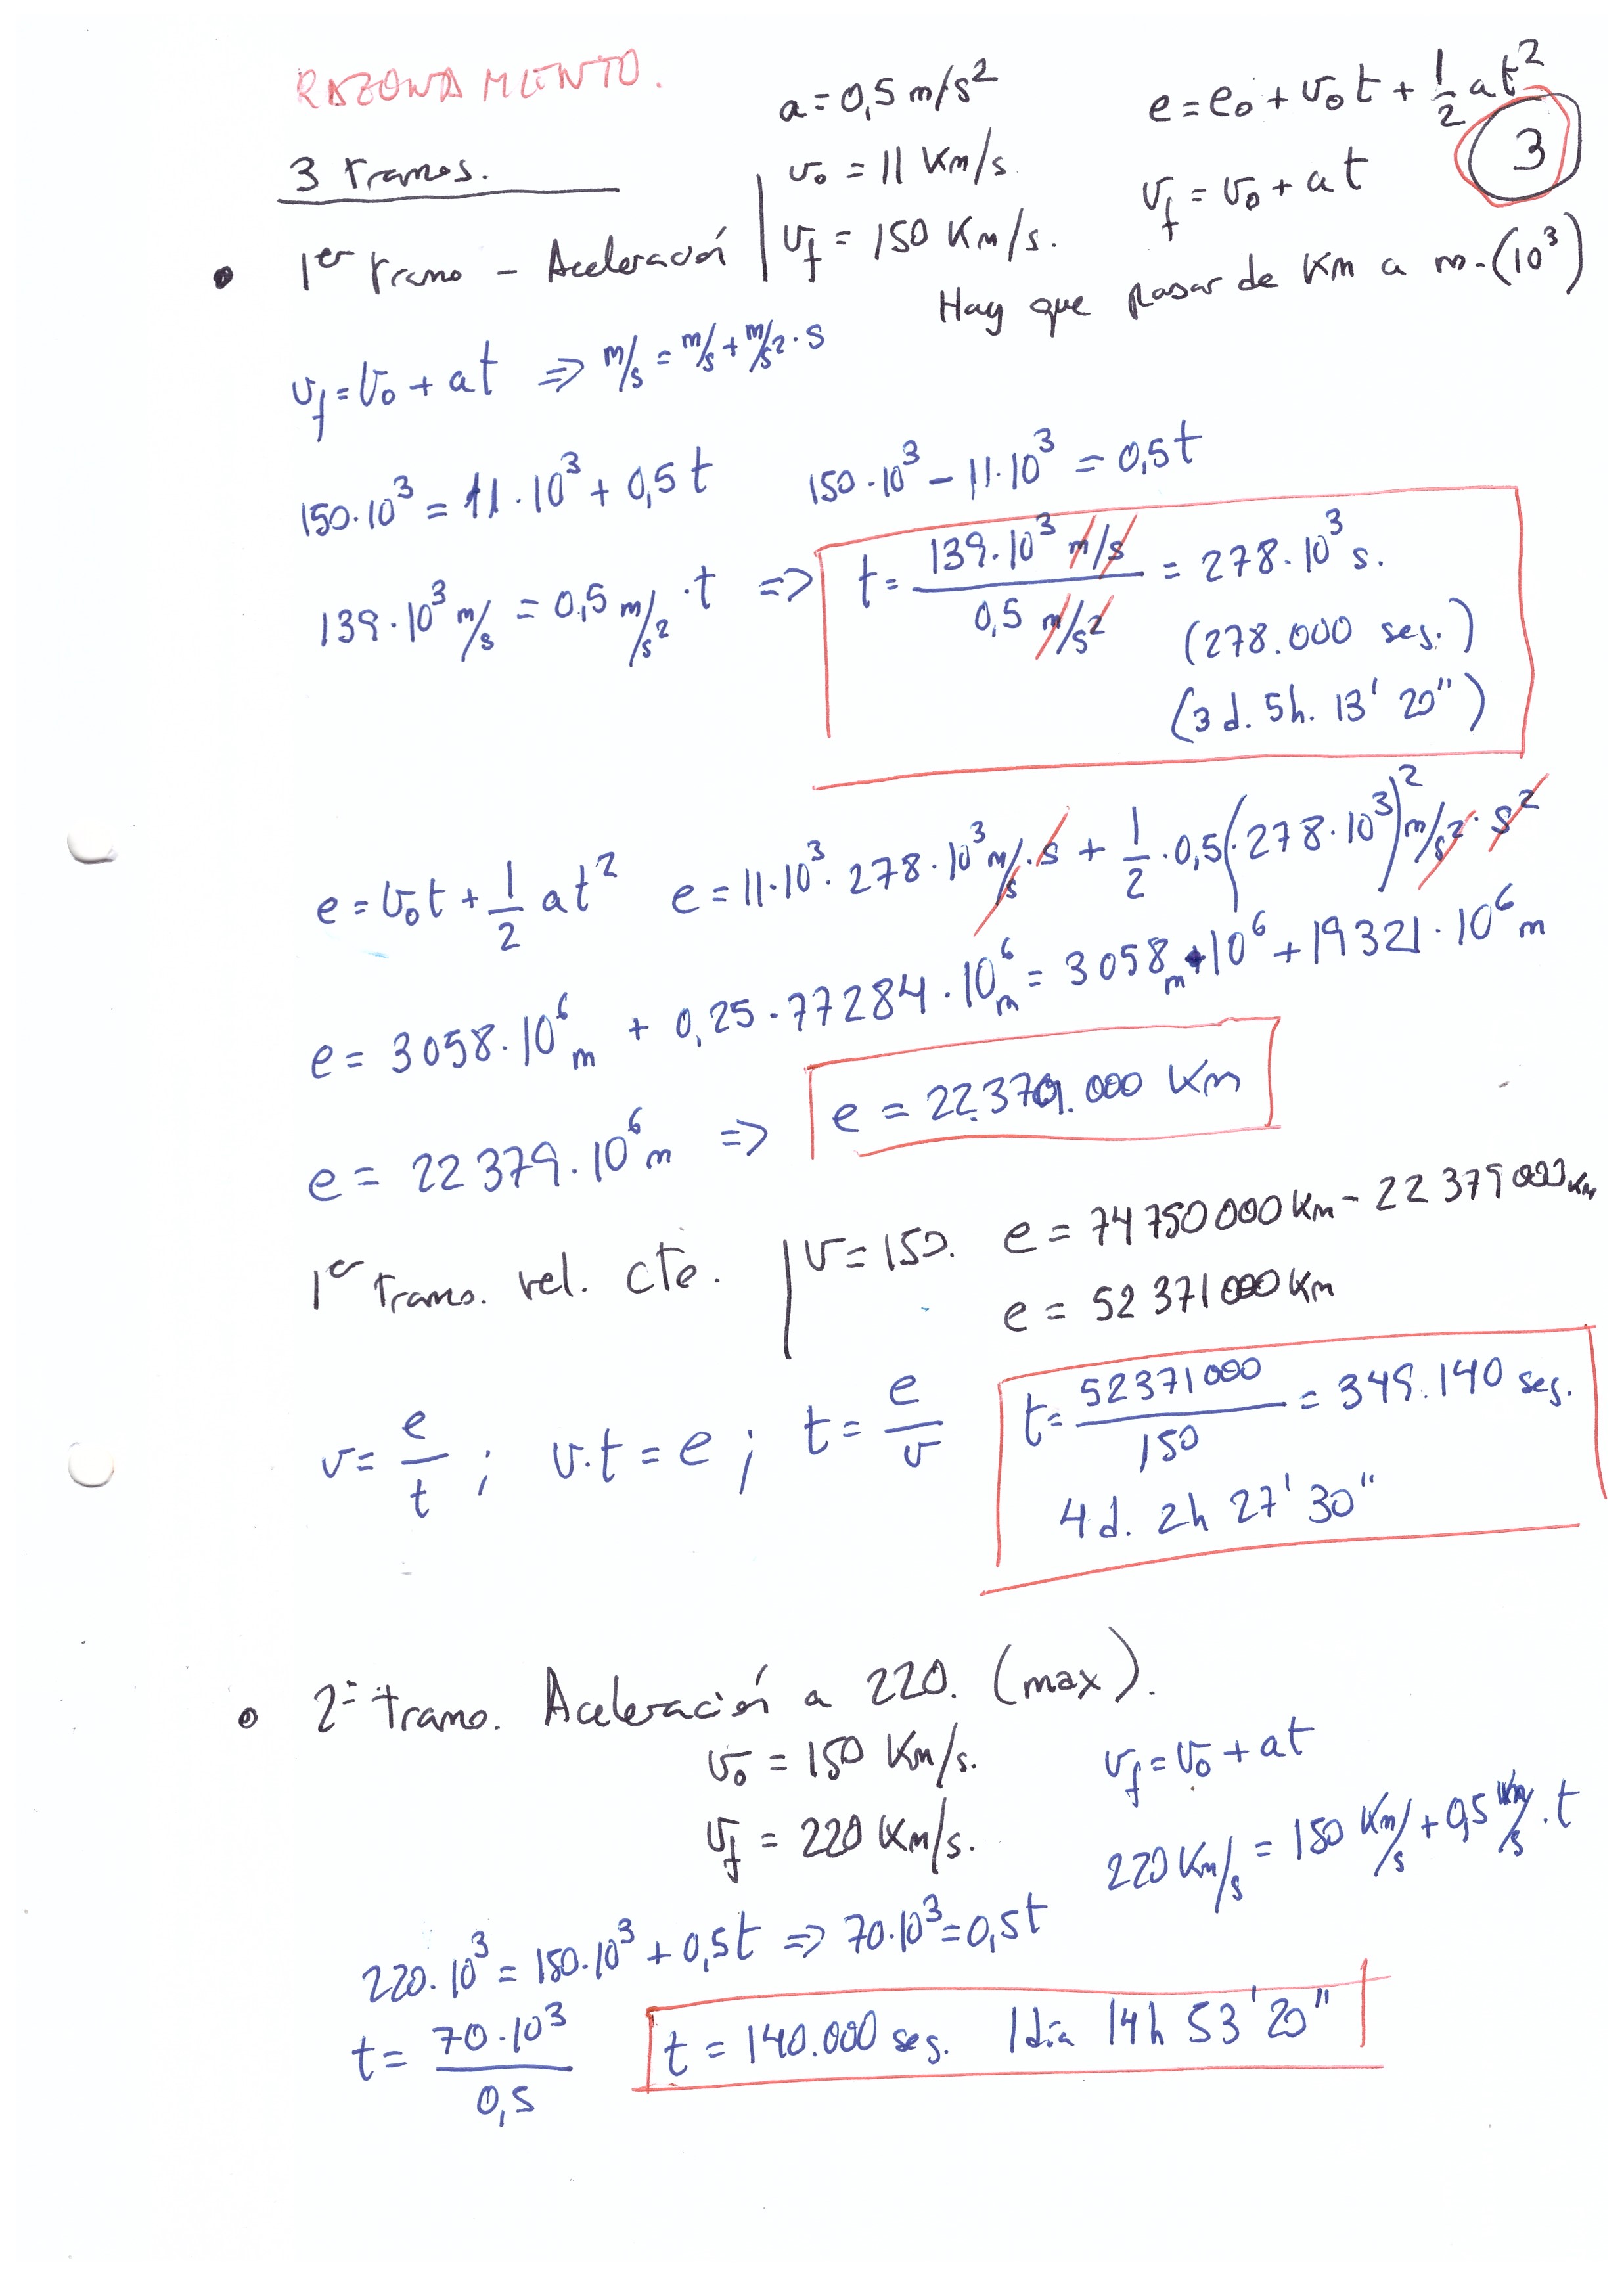 RAZONAMIENTO.
a = 0,5 m/s²
e = e₀ + v₀t + 1/2 at²
3
3 tramos.
v₀ = 11 Km/s.
v_f = v₀ + at
• 1er tramo - Aceleración | v_f = 150 Km/s.
Hay que pasar de Km a m. (10³)
v_f = v₀ + at ⇒ m/s = m/s + m/s² · s
150·10³ = 11·10³ + 0,5t 150·10³ - 11·10³ = 0,5t
139·10³ m/s = 0,5 m/s² · t ⇒ t = 139·10³ m/s / 0,5 m/s² = 278·10³ s.
(278.000 seg.)
(3 d. 5h. 13' 20")
e = v₀t + 1/2 at² e = 11·10³ · 278·10³ m/s · s + 1/2 · 0,5 (278·10³)² m/s² · s²
e = 3058·10⁶ m + 0,25 · 77284·10⁶ m = 3058 m · 10⁶ + 19321·10⁶ m
e = 22379·10⁶ m ⇒ e = 22.379.000 Km
1er tramo. vel. cte. | v = 150. e = 74750000 Km - 22379000 Km
e = 52371000 Km
v = e/t ; v·t = e ; t = e/v t = 52371000/150 = 349.140 seg.
4 d. 2h 27' 30"
• 2º tramo. Aceleración a 220. (max).
v₀ = 150 Km/s. v_f = v₀ + at
v_f = 220 Km/s. 220 Km/s = 150 Km/s + 0,5 /s · t
220·10³ = 150·10³ + 0,5t ⇒ 70·10³ = 0,5t
t = 70·10³ / 0,5 t = 140.000 seg. 1 día 14h 53' 20"